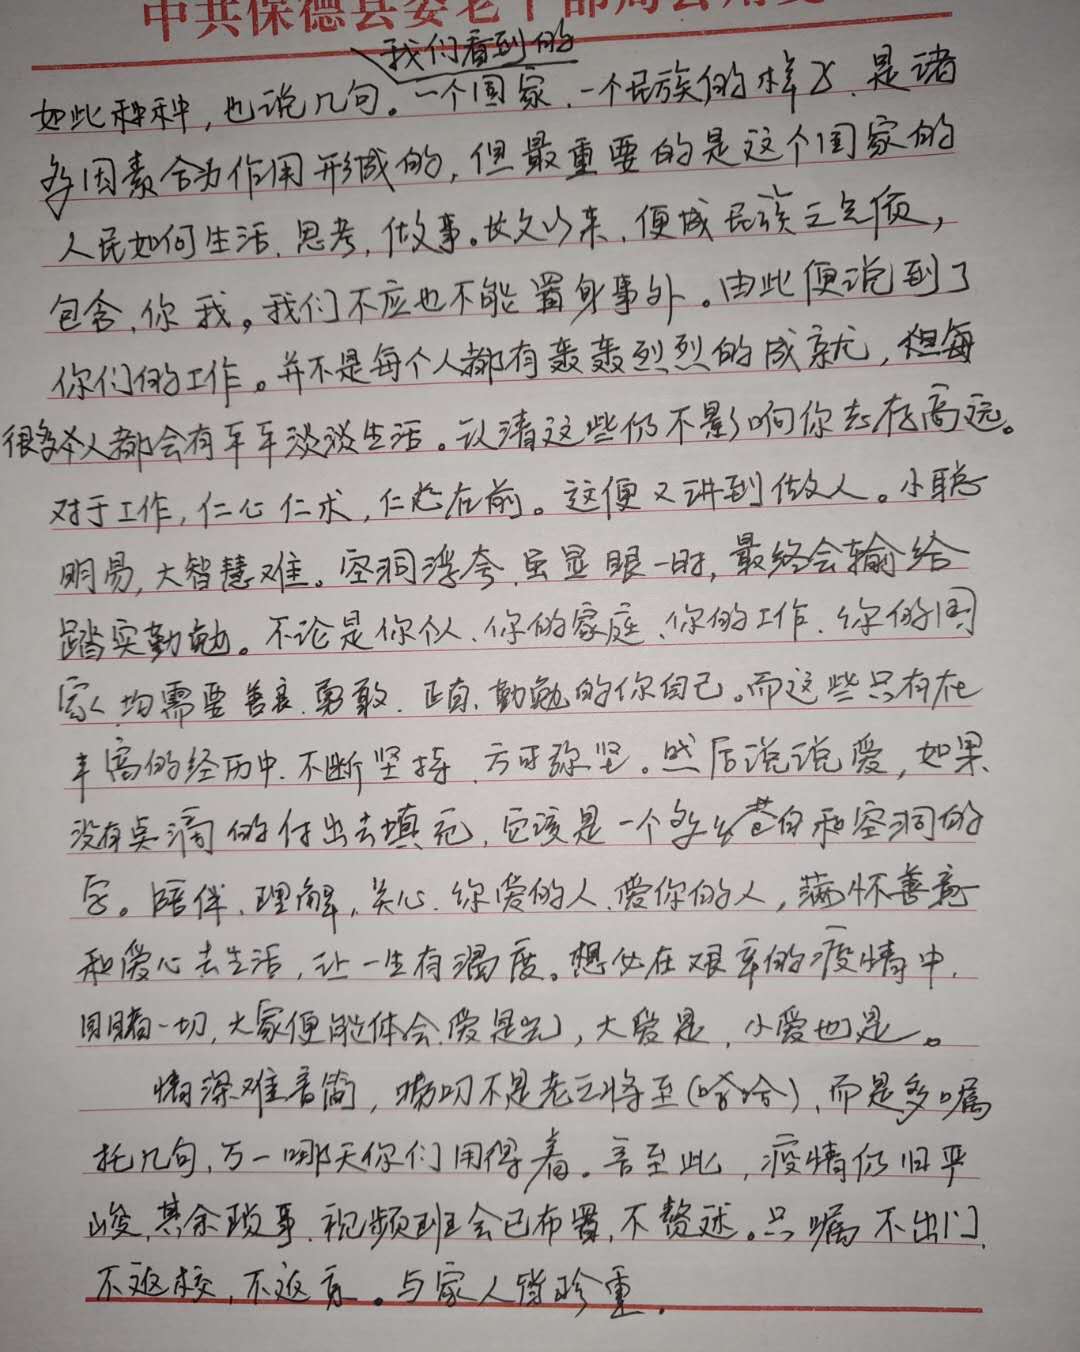 中共保德县委老干部局公用笺
我们看到的
如此种种，也说几句。一个国家、一个民族的样子，是诸
多因素合为作用形成的，但最重要的是这个国家的
人民如何生活、思考、做事。长久以来，便成民族之气质，
包含，你我。我们不应也不能置身事外。由此便说到了
你们的工作。并不是每个人都有轰轰烈烈的成就，但每
很多人都会有平平淡淡生活。认清这些仍不影响你志存高远。
对于工作，仁心仁术，仁心在前。这便又讲到做人。小聪
明易，大智慧难。空洞浮夸，虽显眼一时，最终会输给
踏实勤勉。不论是你个人、你的家庭、你的工作、你的国
家，均需要善良、勇敢、正直、勤勉的你自己。而这些只有在
丰富的经历中，不断坚持，方可弥坚。然后说说爱，如果
没有点滴的付出去填充，它该是一个多么苍白和空洞的
字。陪伴、理解，关心，你爱的人、爱你的人，满怀善意
和爱心去生活，让一生有温度。想必在艰辛的疫情中，
目睹一切，大家便能体会，爱是光，大爱是，小爱也是。
情深难言简，唠叨不是老之将至（哈哈），而是多嘱
托几句，万一哪天你们用得着。言至此，疫情仍旧严
峻，其余琐事，视频班会已布置，不赘述。只嘱不出门，
不返校，不返京。与家人皆珍重。